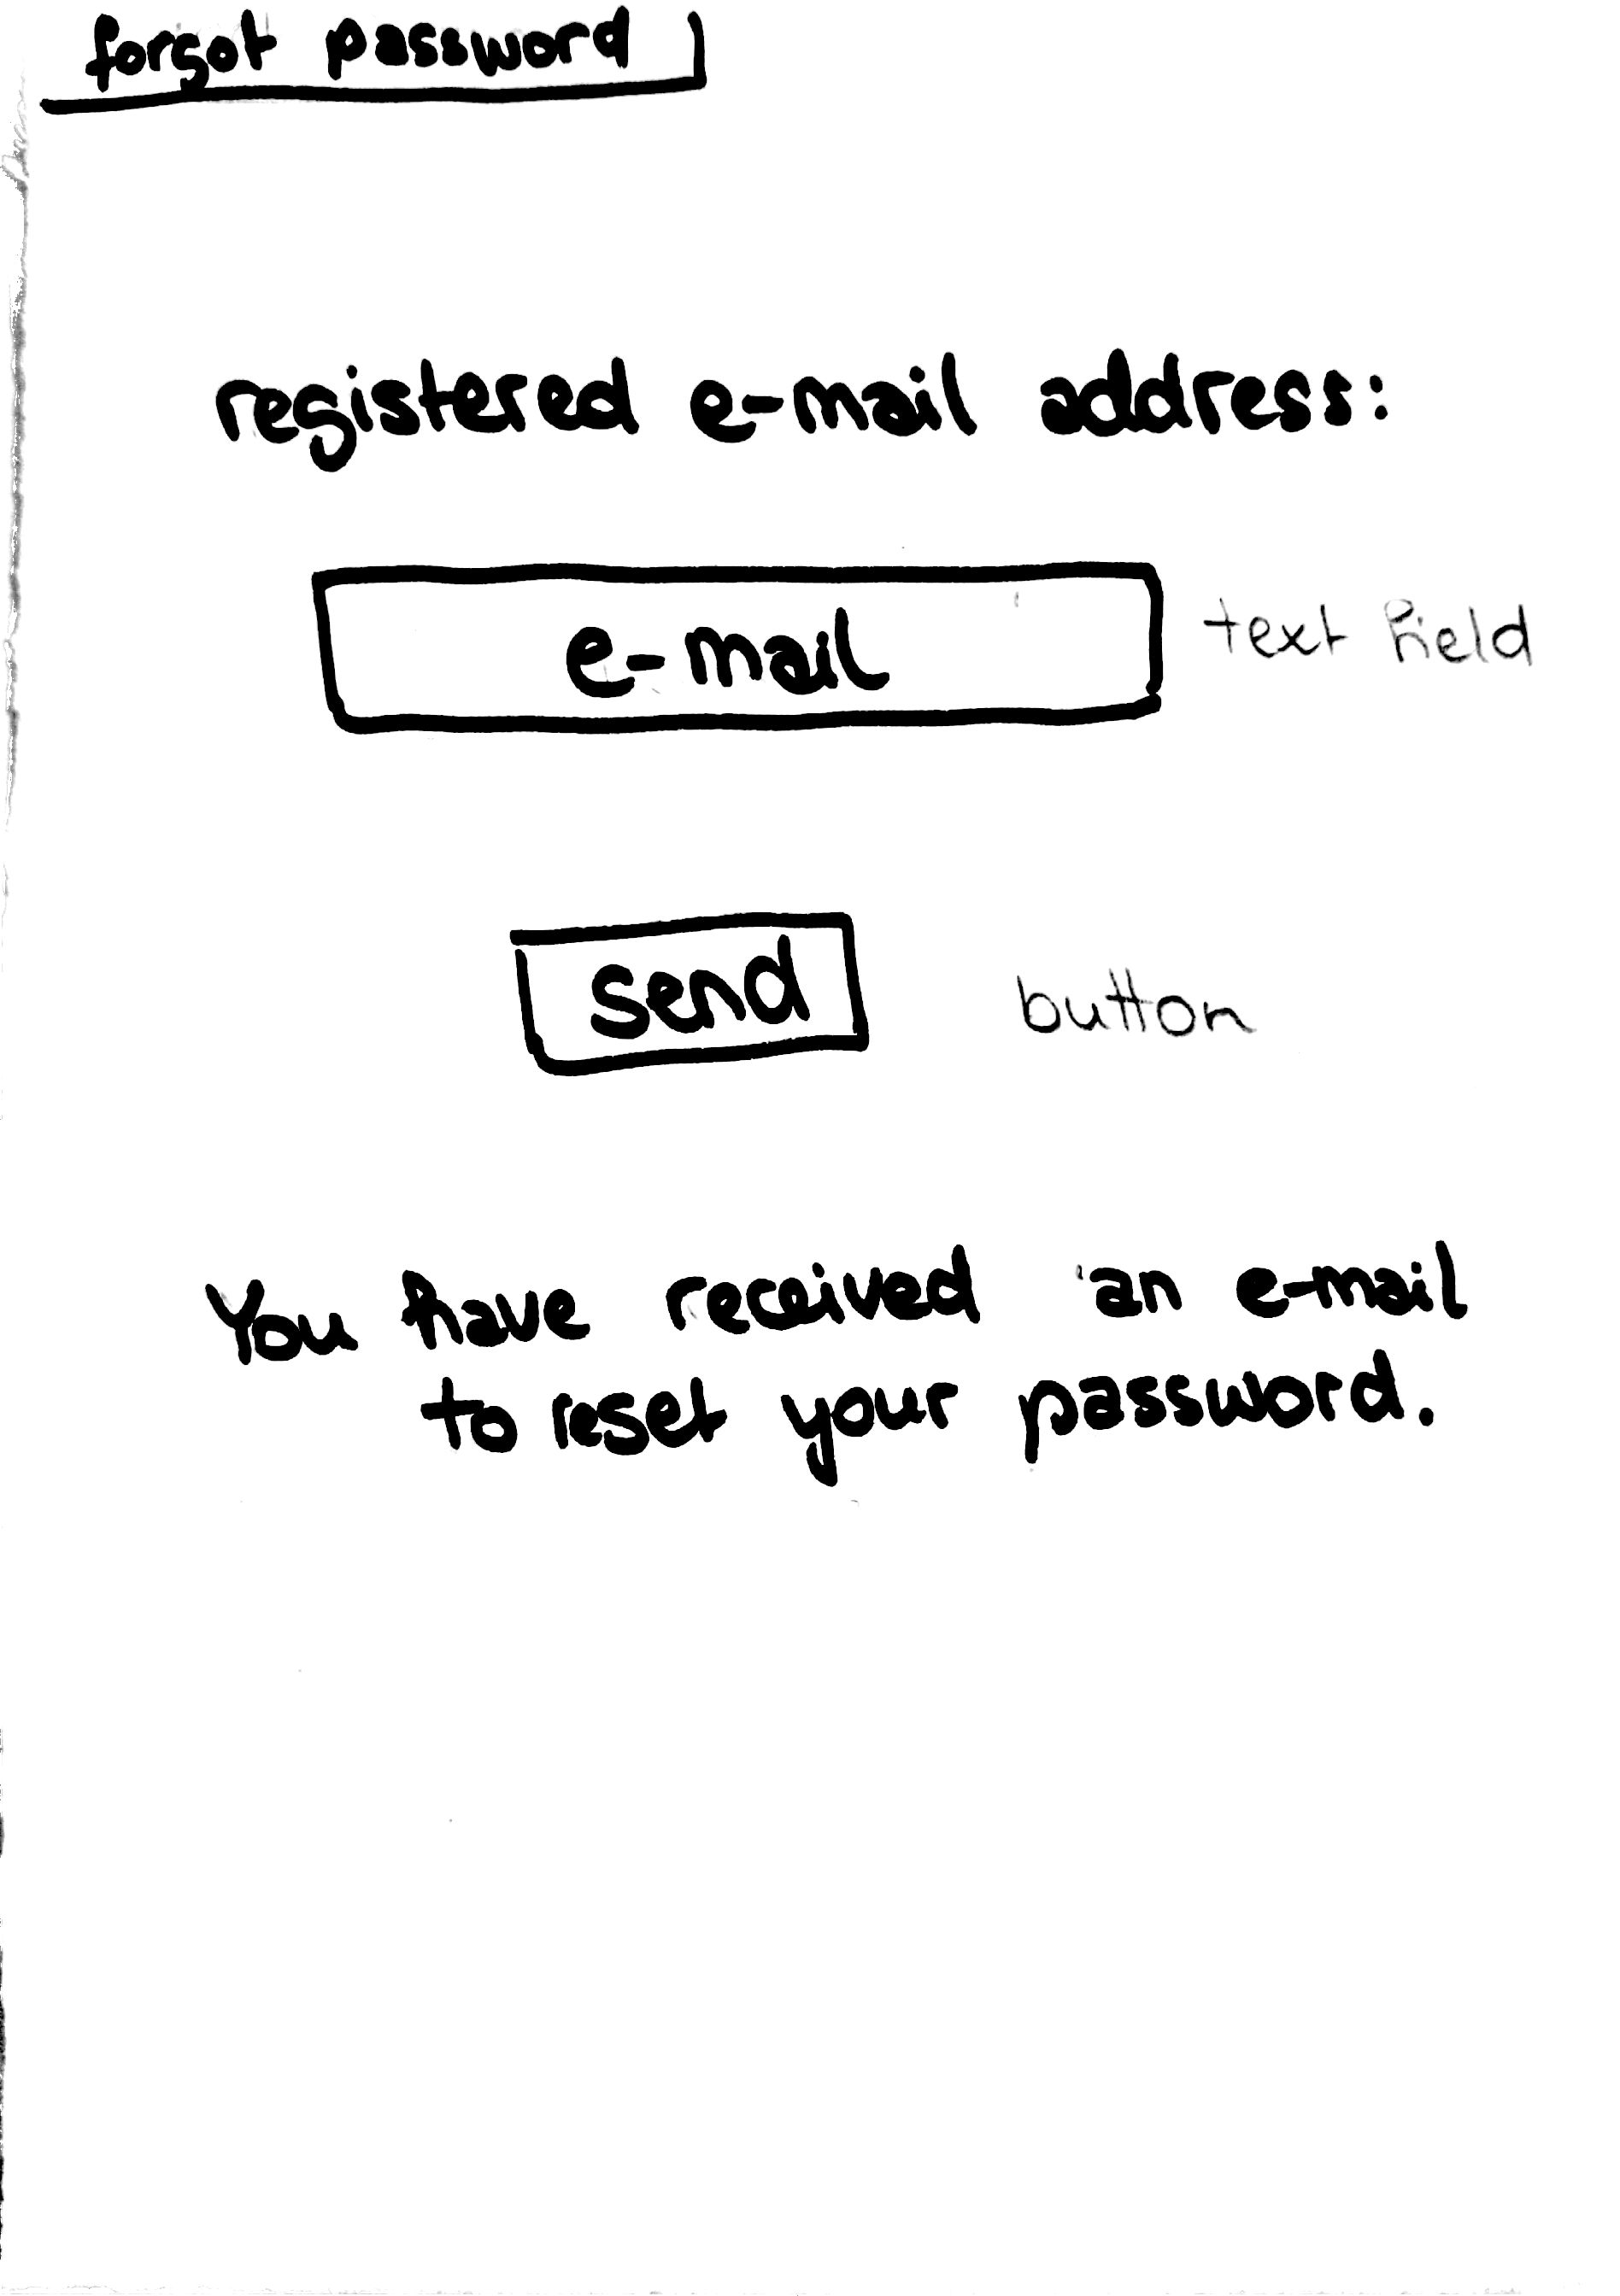 forgot password
registered e-mail address:
e-mail
text field
send
button
You have received an e-mail
to reset your password.